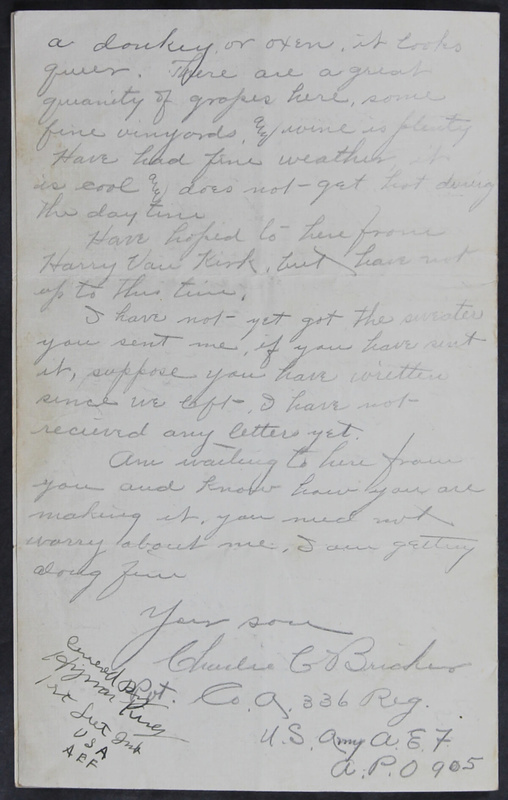 a donkey, or oxen, it looks
queer. There are a great
quanity of grapes here, some
fine vinyords, and wine is plenty
Have had fine weather, it
is cool and does not get hot during
the day time
Have hoped to here from
Harry Van Kirk, but have not
up to this time.
I have not yet got the sweater
you sent me, if you have sent
it, suppose you have written
since we left, I have not
recieved any letters yet.
Am waiting to here from
you and know how you are
making it, you need not
worry about me, I am getting
along fine
Your son
Charlie C Bricker
Pvt. Co. A, 336 Reg.
U.S. Army A.E.F.
A.P.O 905
Censored by
Hyman
1st Lieut Inf
USA
AEF